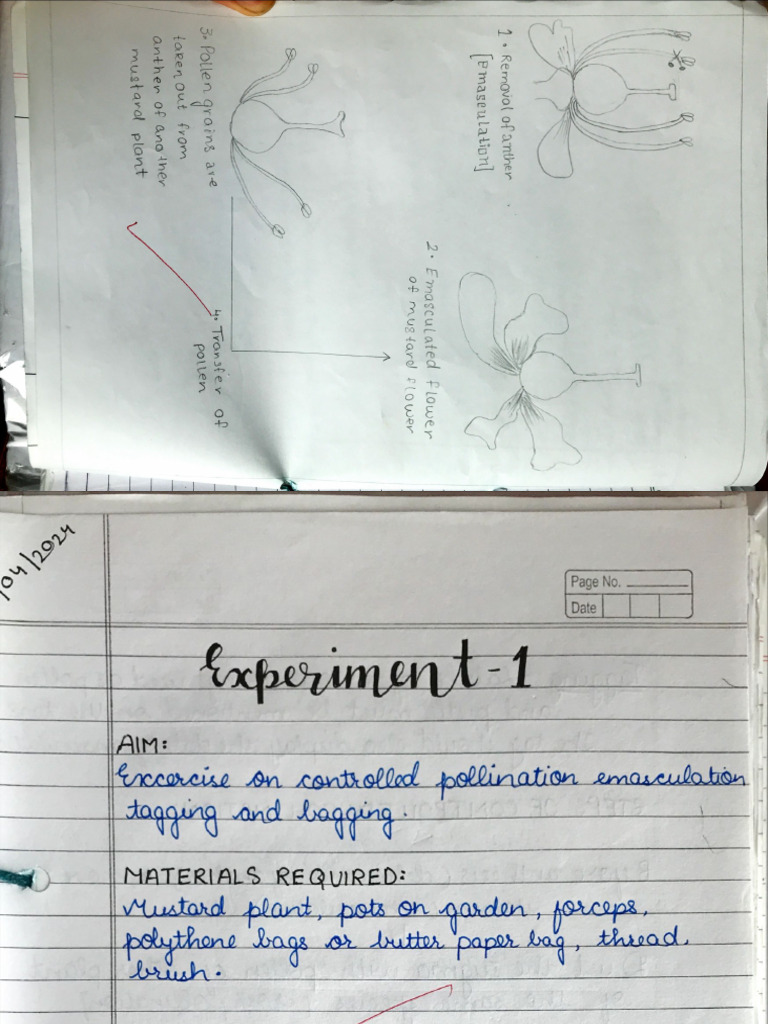 1. Removal of anther
[Emasculation]
2. Emasculated flower
of mustard flower
3. Pollen grains are
taken out from
anther of another
mustard plant
4. Transfer of
pollen
/04/2024
Page No.
Date
Experiment-1
AIM:
Excercise on controlled pollination emasculation
tagging and bagging.
MATERIALS REQUIRED:
Mustard plant, pots on garden, forceps,
polythene bags or butter paper bag, thread,
brush.